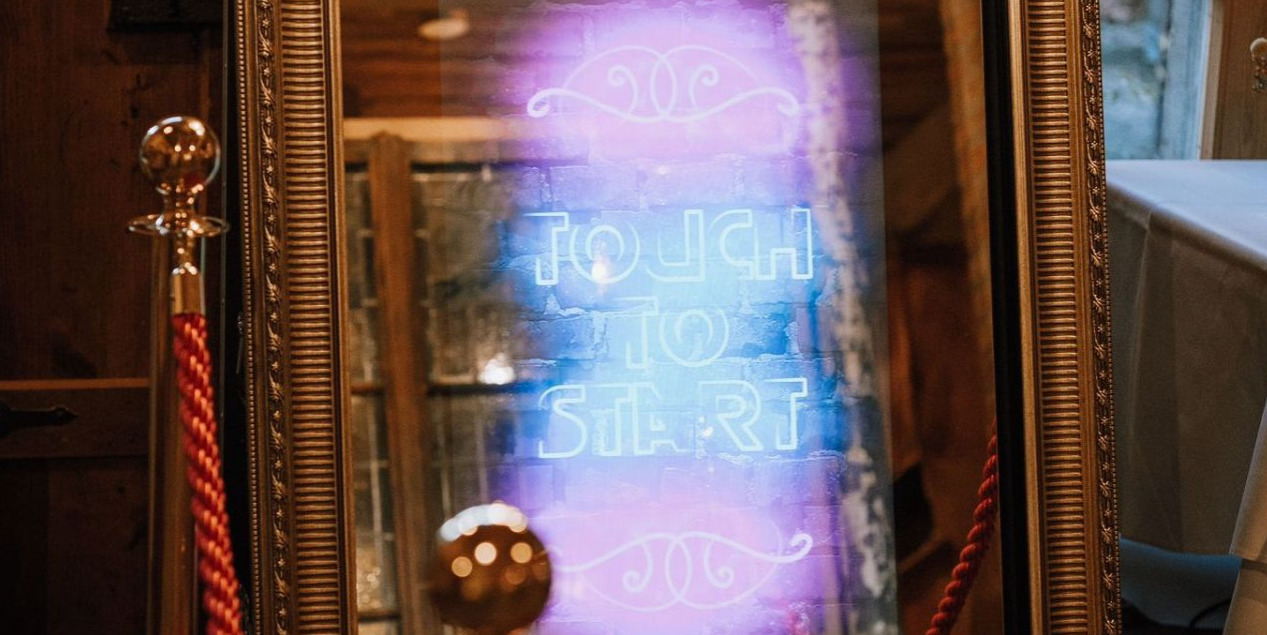 TOUCH
TO
START